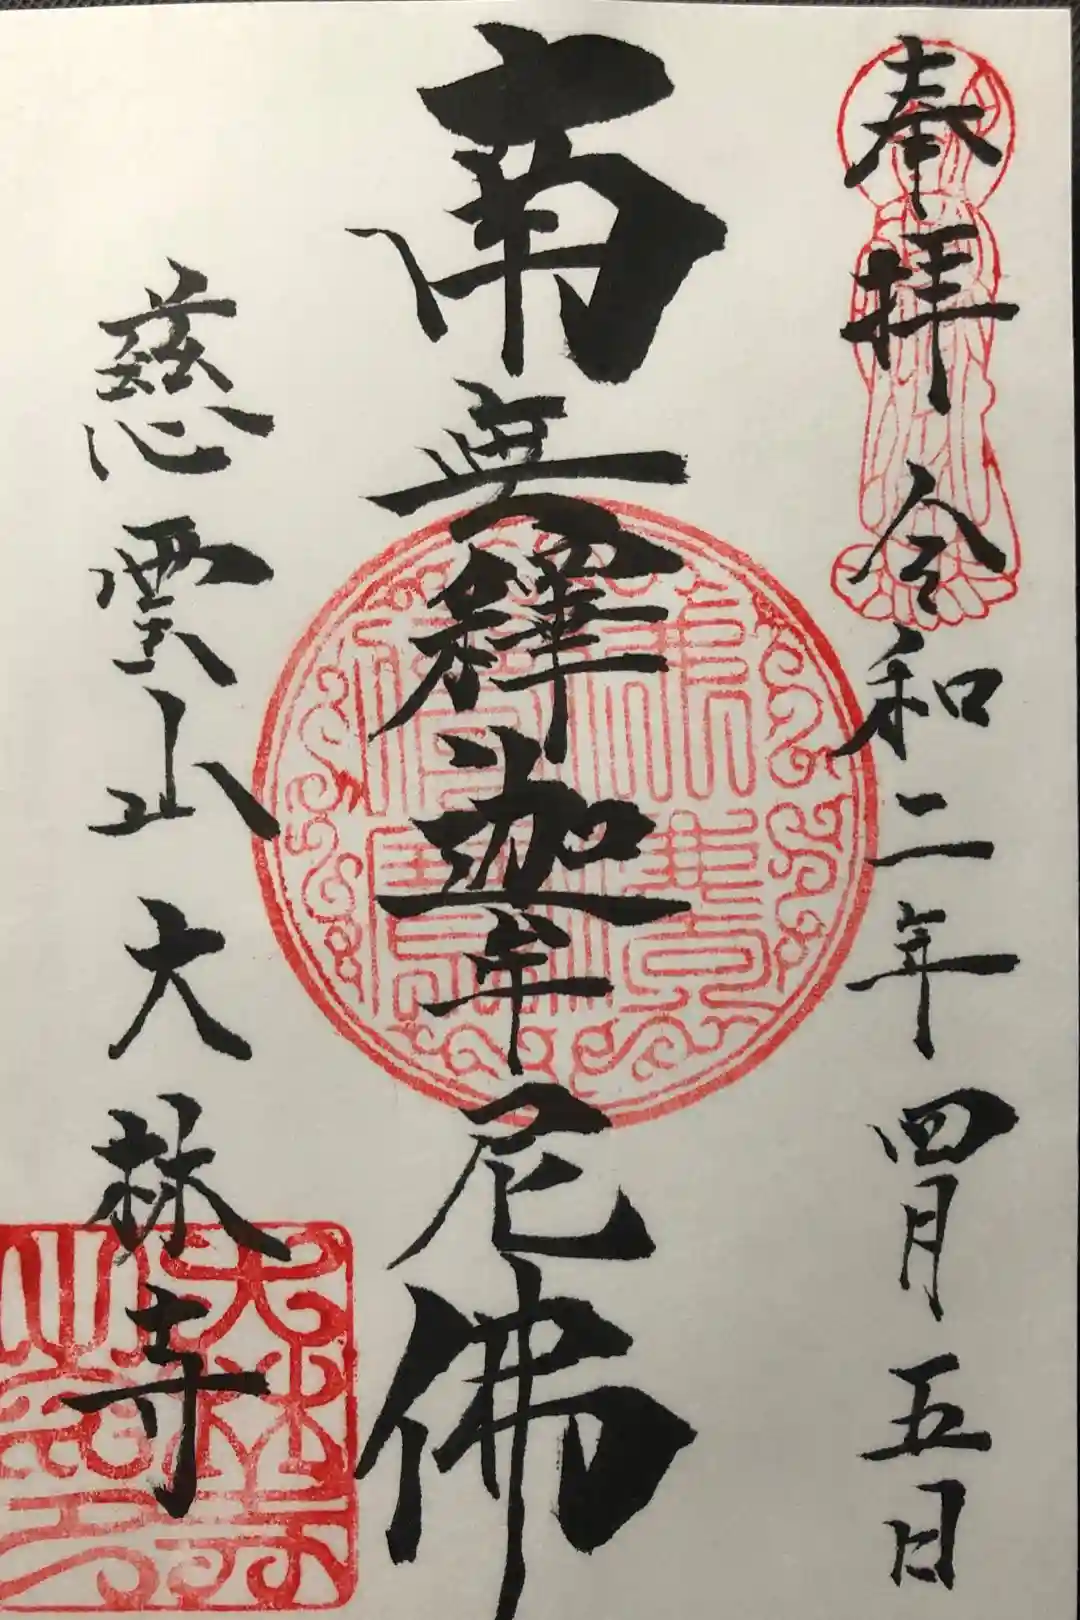 奉拝 令和二年四月五日
南無釋迦牟尼佛
慈雲山大林寺